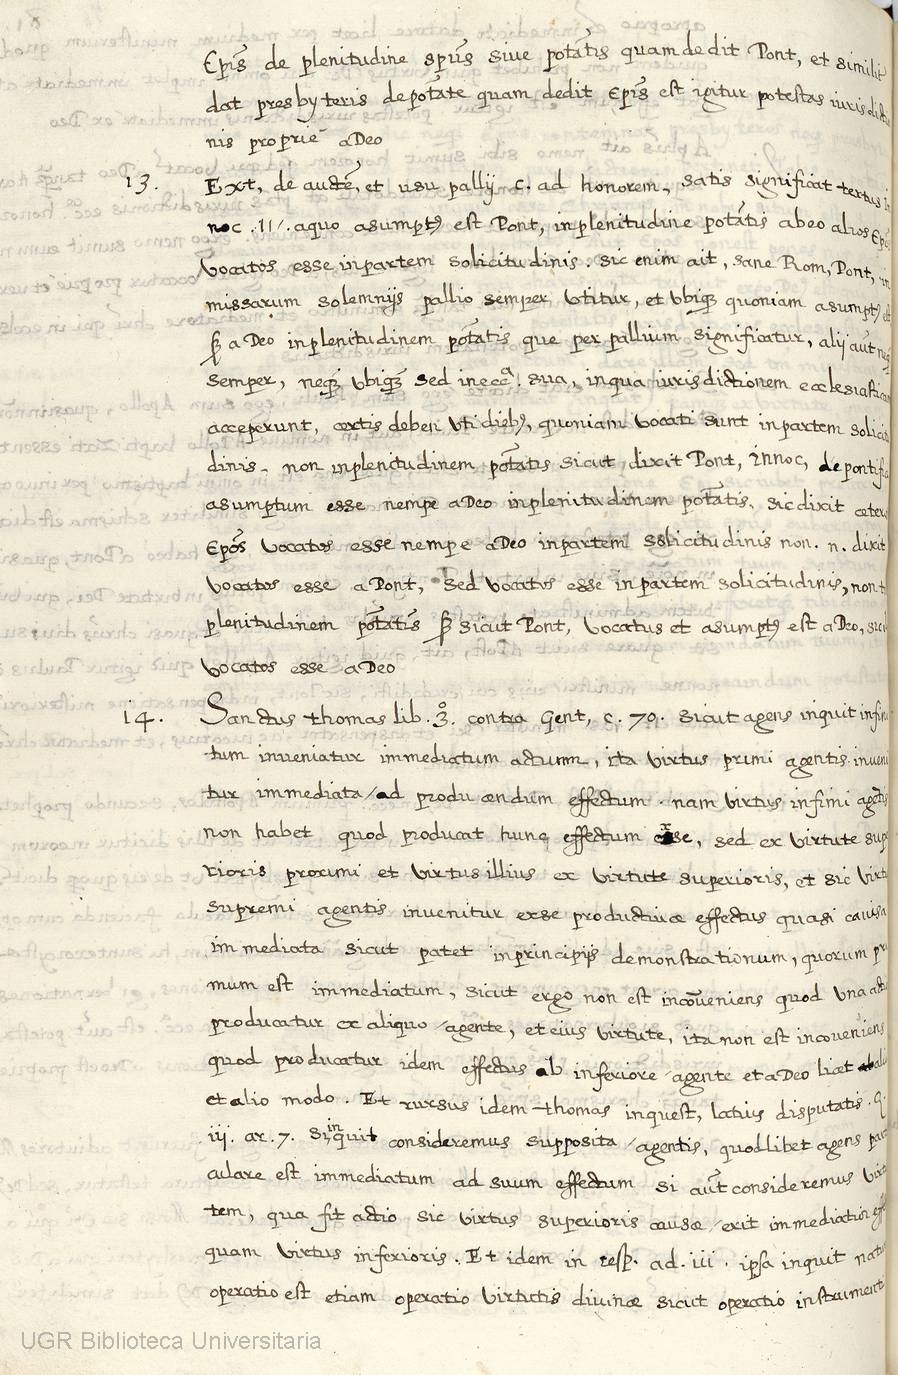 Epis̃ de plenitudine sp̃us sive potãtis quam dedit Pont, et similit
dat presbyteris de potate quam dedit Epis̃ est igitur potestas iurisdictio
nis proprie a Deo
13. Ext, de aucte, et usu pallij c. ad honorem, satis significat textus in
noc .11/. a quo asumptꝰ est Pont, in plenitudine potãtis ab eo alios Epõs
Vocatos esse in partem solicitudinis. sic enim ait, sane Rom, Pont, in
missarum solemnijs pallio semper Utitur, et Vbiqꝫ quoniam asumptꝰ est
a Deo in plenitudinem potãtis que per pallium significatur, alij aũt neqꝫ
semper, neqꝫ Vbiqꝫ sed in ecca. sua, in qua iurisdictionem ecclesiasticam
acceperunt, certis deben Uti diebꝰ, quoniam vocati sunt in partem solicitu
dinis, non in plenitudinem potãtis sicut dixit Pont, innoc, de pontifice
asumptum esse nempe a Deo in plenitudinem potãtis, sic dixit ceteros
Epõs Vocatos esse nempe a Deo in partem solicitudinis non .n. dixit
Vocatos esse a Pont, sed Vocatos esse in partem solicitudinis, non
plenitudinem potãtis sicut Pont, Vocatus et asumptꝰ est a Deo, sic
Vocatos esse a Deo
14. Sanctus thomas lib. 3º. contra Gent, c. 70. sicut agens inquit infini
tum inveniatur immediatum actum, ita virtus primi agentis inveni
tur immediata /ad producendum effectum. nam virtus infimi agẽtis
non habet quod producat hunc effectum ex se, sed ex virtute supe
rioris proximi et virtus illius ex virtute superioris, et sic virtus
supremi agentis invenitur exse productivæ effectus quasi causa
immediata sicut patet in principijs demonstrationum, quorum pri
mum est immediatum, sicut ergo non est incoveniens quod una actio
producatur ex aliquo /agente, et eius virtute, ita non est incoveniens
quod producatur idem effectus ab inferiore /agente et a Deo licet alio
et alio modo. Et rursus idem thomas in quest, latius disputatis. q.
iij. ar. 7. Si inquit consideremus supposita /agentis, quodlibet agens parti
culare est immediatum ad suum effectum si aũt consideremus virtu
tem, qua fit actio sic virtus superioris causæ /erit immediatior effe
quam virtus inferioris. Et idem in resp. ad. iii. ipsa inquit naturæ
operatio est etiam operatio virtutis divinæ sicut operatio instrumenti
UGR Biblioteca Universitaria